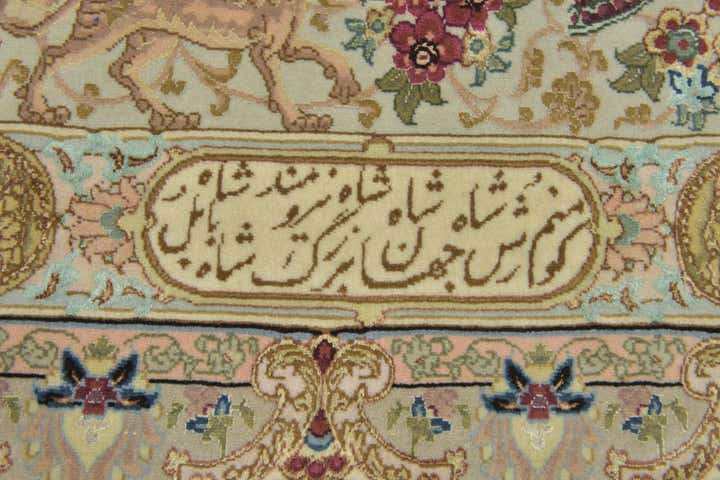 منم کوروش شاه جهان شاه بزرگ شاه نیرومند شاه بابل